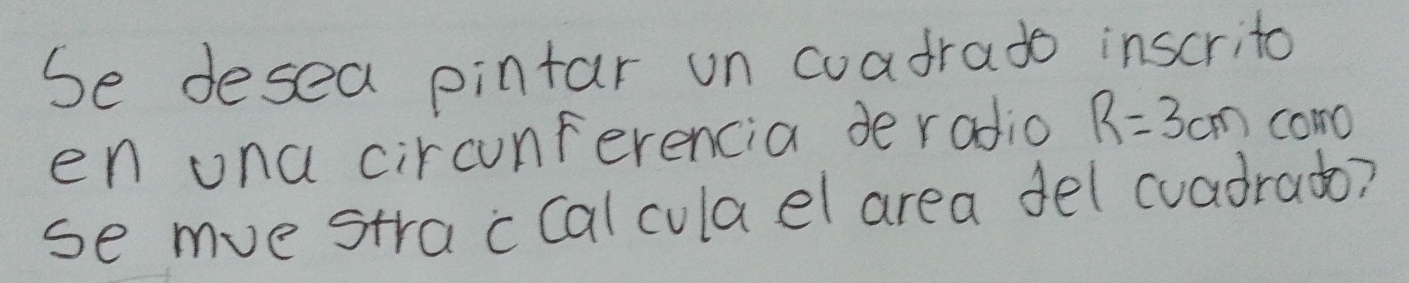 Se desea pintar un cuadrado inscrito
en una circunferencia de radio R=3cm como
se muestra ¿Calcula el area del cuadrado?